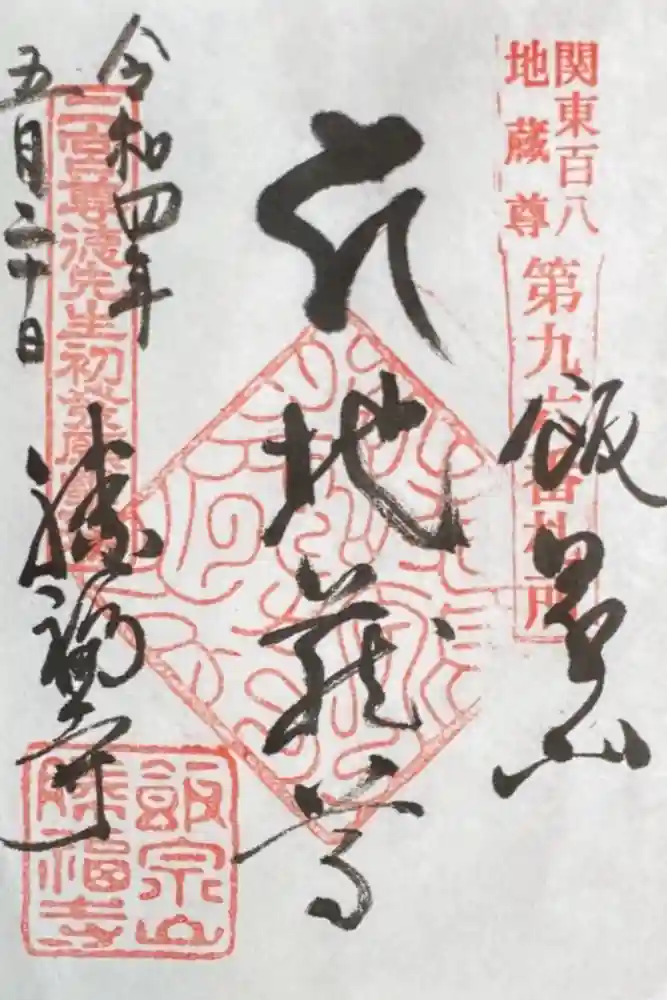 関東百八
地蔵尊
第九六番札所
飯泉山
地蔵尊
令和四年
五月二十日
二宮尊徳先生初發願
勝福寺
飯泉山
勝福寺